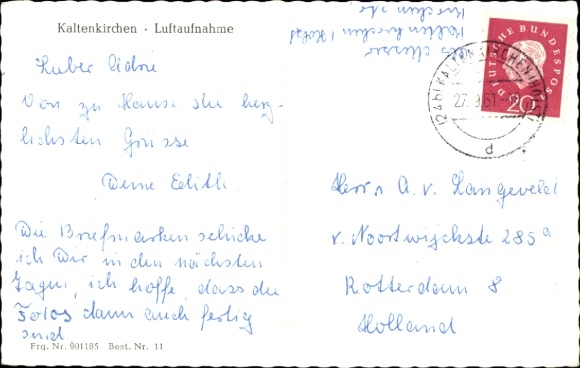 Kaltenkirchen · Luftaufnahme
Lieber
Von zu Hause die herz-
lichsten Grüsse
Deine Edith.
Die Briefmarken schicke
ich Dir in den nächsten
Tagen, ich hoffe, dass die
Fotos dann auch fertig
sind
Frg. Nr. 901185 Best. Nr. 11
Kaltenkirchen / Holst
DEUTSCHE BUNDESPOST
20
(24b) KALTENKIRCHEN (HOLST)
27. 61
d
Herrn A. v. Langeveld
v. Noortwijckstr 285a
Rotterdam 8
Holland